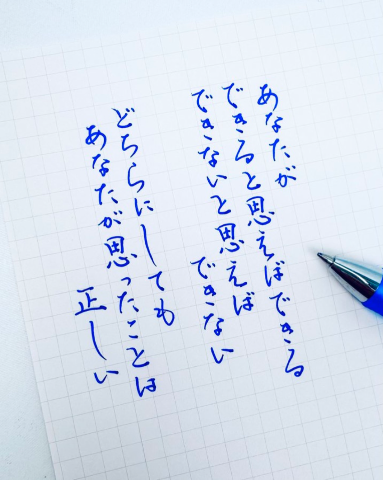 あなたが
できると思えばできる
できないと思えば
できない
どちらにしても
あなたが思ったことは
正しい